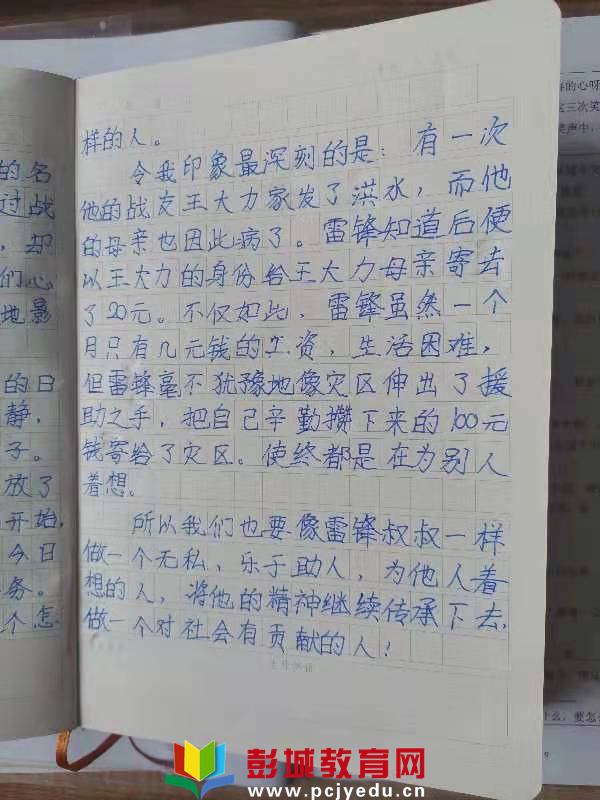 样的人。
令我印象最深刻的是：有一次
他的战友王大力家发了洪水，而他
的母亲也因此病了。雷锋知道后便
以王大力的身份给王大力母亲寄去
了20元。不仅如此，雷锋虽然一个
月只有几元钱的工资，生活困难，
但雷锋毫不犹豫地像灾区伸出了援
助之手，把自己辛勤攒下来的100元
钱寄给了灾区。使终都是在为别人
着想。
所以我们也要像雷锋叔叔一样
做一个无私，乐于助人，为他人着
想的人，将他的精神继续传承下去，
做一个对社会有贡献的人！
的名
过战
，却
们心
地影
的日
静，
子。
放了
开始，
今日
务。
个怎
样的心呀
这三次笑
笑声中，
什么，要怎么
彭城教育网
www.pcjyedu.com